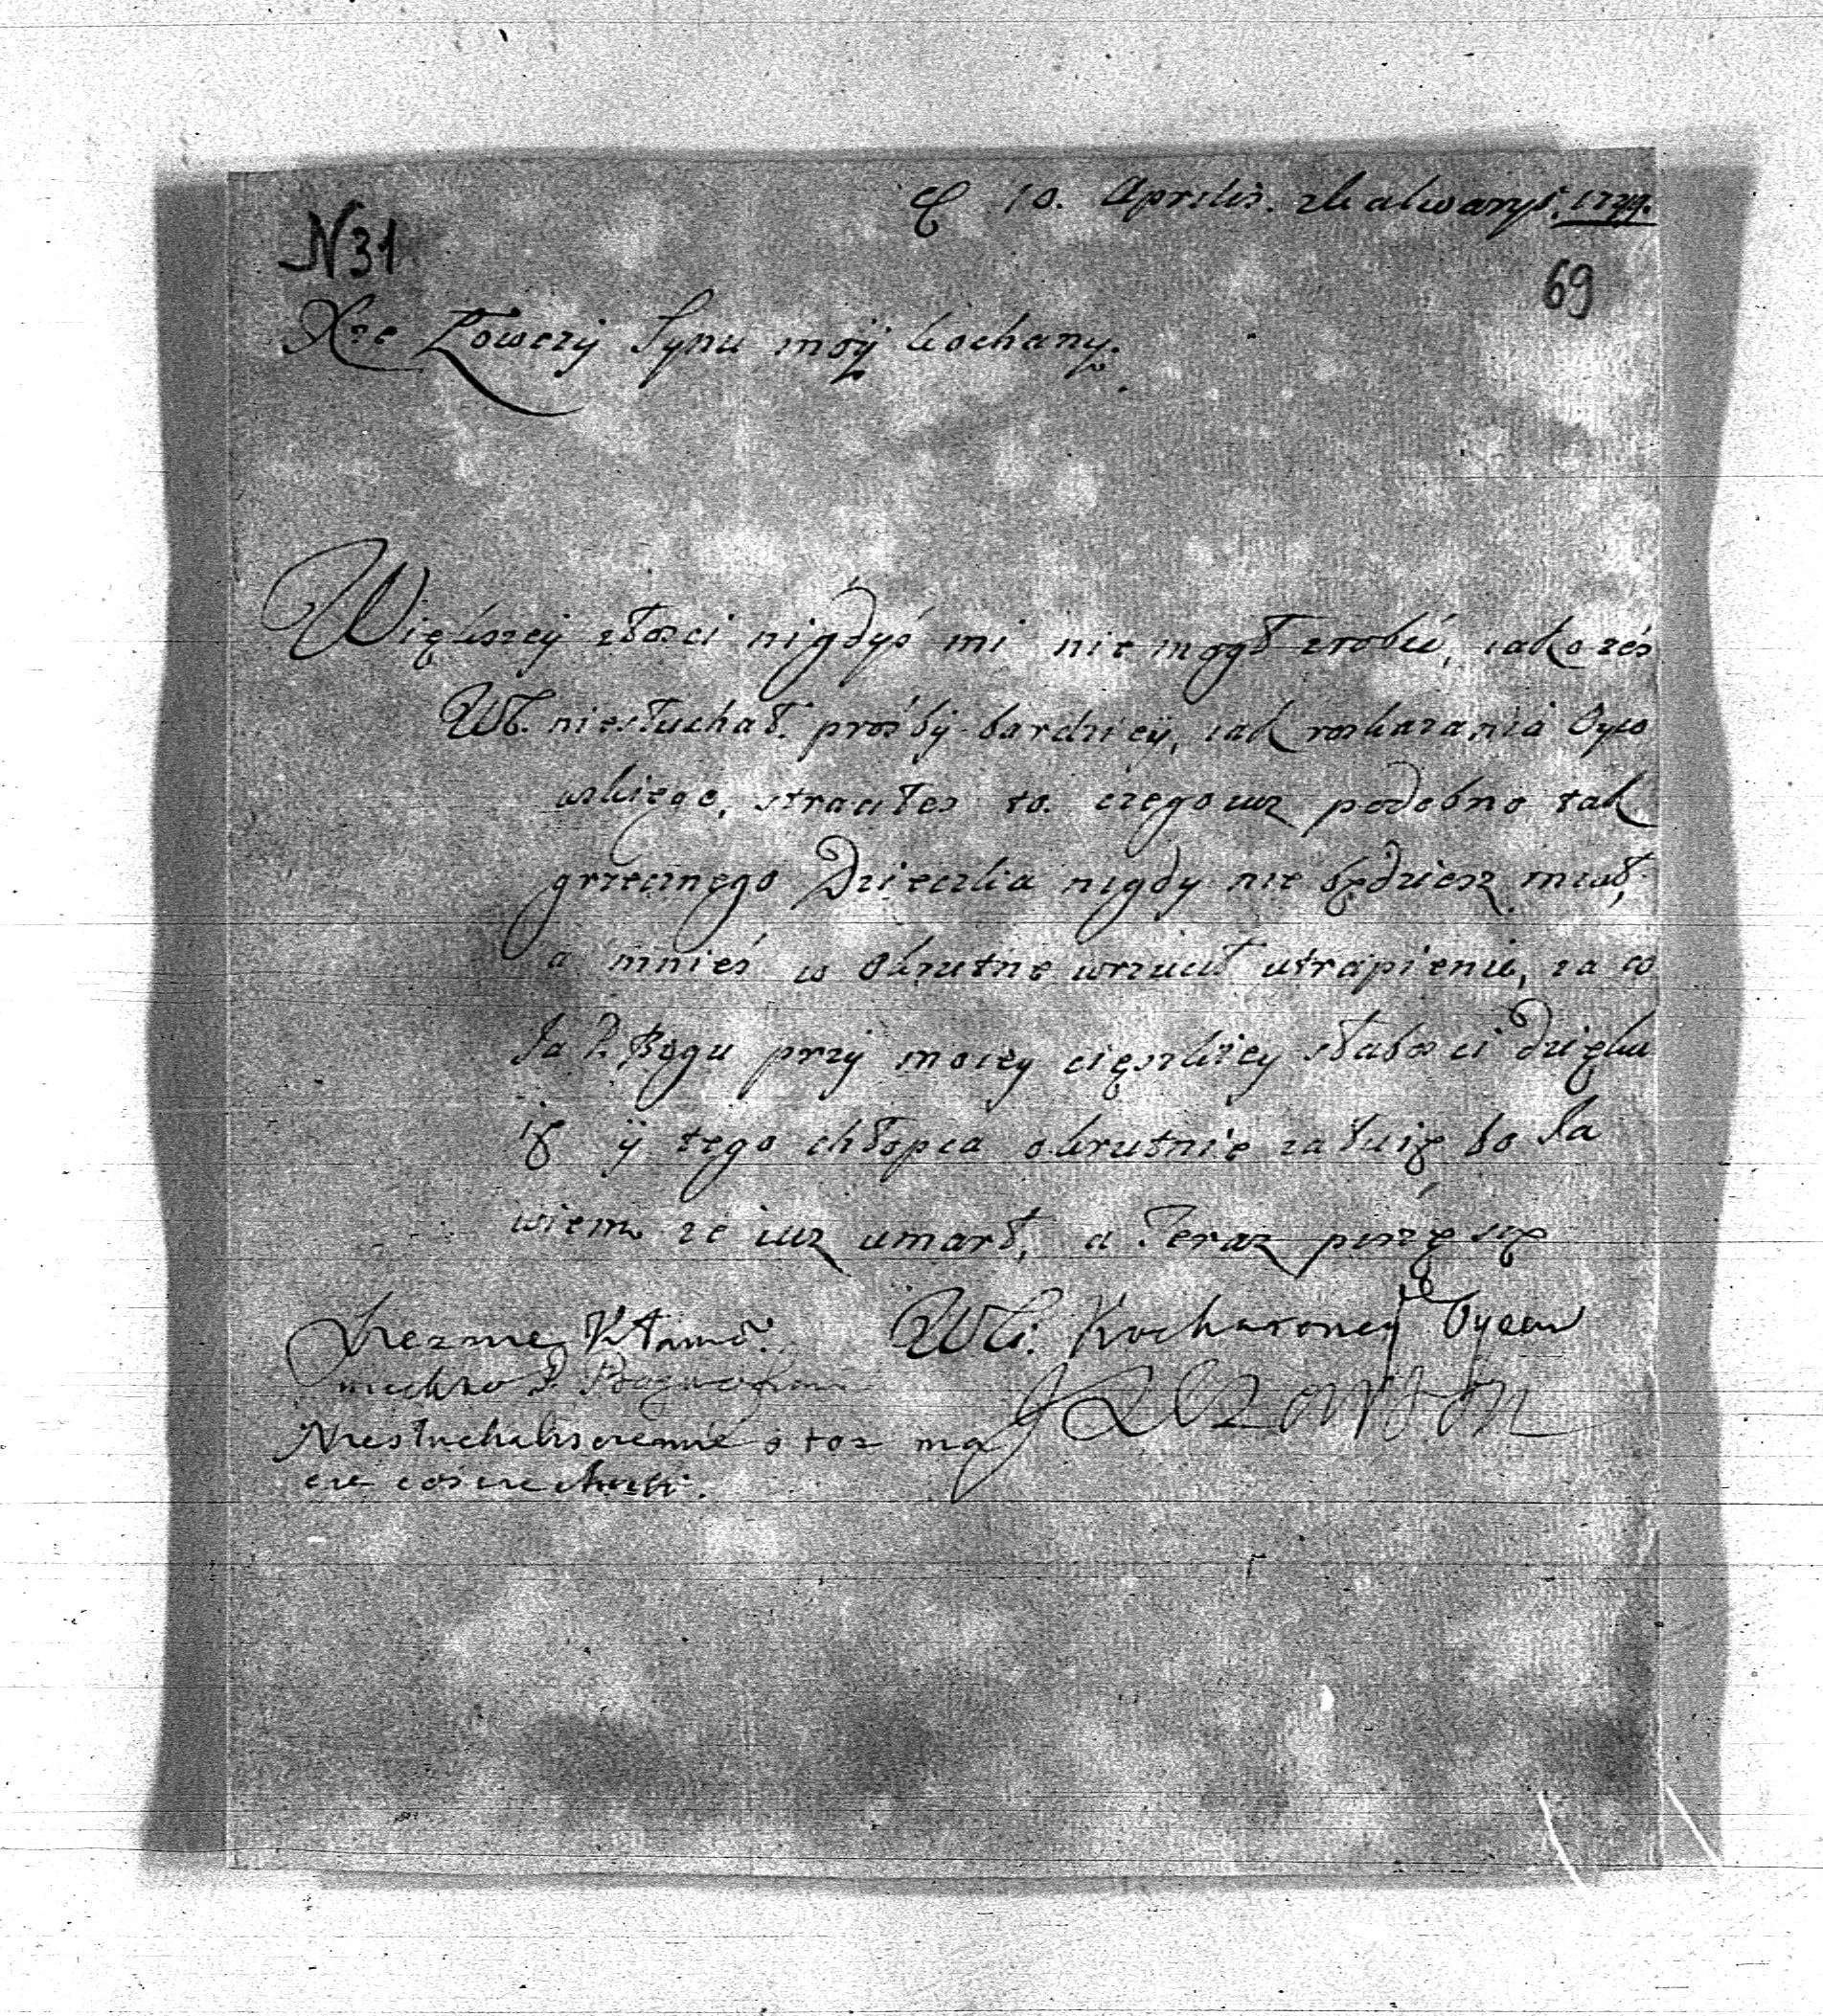 10. Aprilis. zKalwaryi. 
N31
69
Xze Łowczÿ Synu móÿ kochany.
Większeÿ złosci nigdyś mi nie mogł zrobić, iako zes
niesłuchał. prośbÿ bardzieÿ, iak roskazania Oyco
wskiego, straciłes to. czego iuz podobno tak
grzecznego Dziecka nigdy nie będziesz miał,
a mnieś w okrutne wrzucił utrapienie, za co
Ja P. Bogu przÿ moiey cięszkiey słabosci dzięku
ię ÿ tego chłopca okrutnie załuię bo Ja
wiem ze iuz umarł, a Teraz piszę się
Kochaioncy Oyciec
Niesłuchaliscie mnie otoz ma
cie coscie